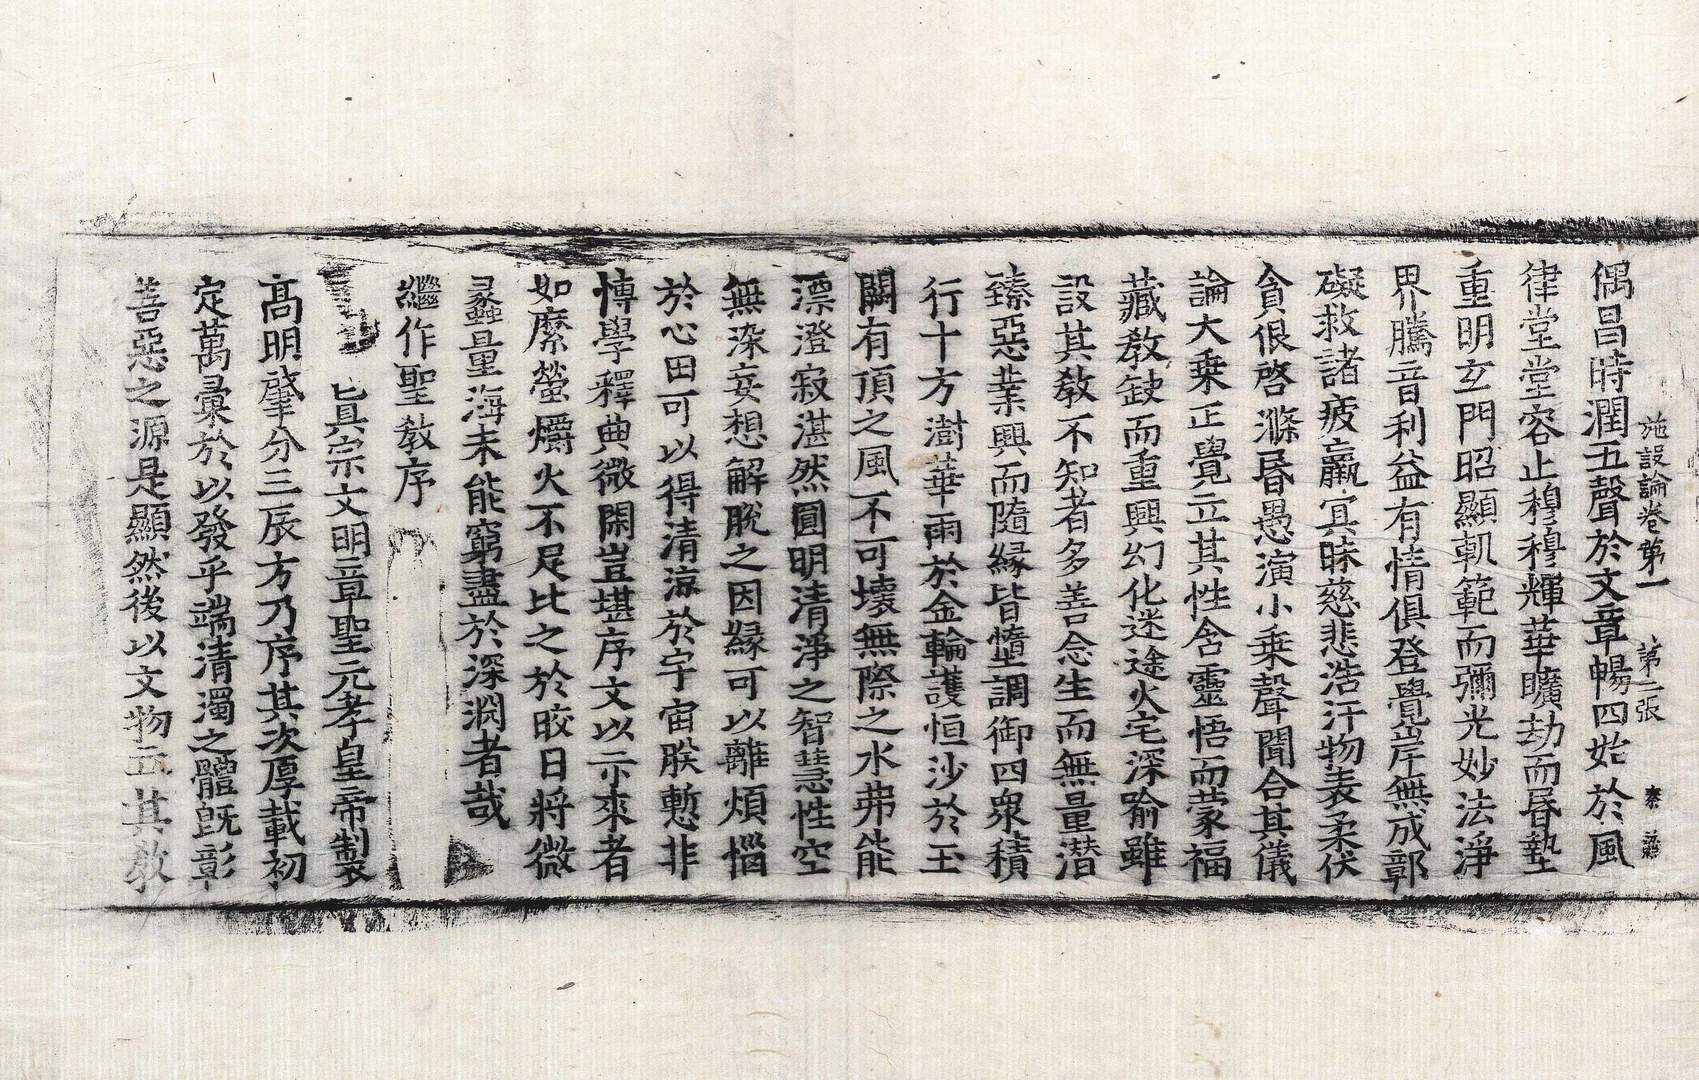 施設論卷第一　第二張　秦
偶昌時潤五聲於文章暢四始於風
律堂堂容止穆穆輝華曠劫而昏墊
重明玄門昭顯軌範而彌光妙法淨
界騰音利益有情俱登覺岸無成鄣
礙救諸疲羸冥昧慈悲浩汗物表柔伏
貪佷啓滌昏愚演小乗聲聞合其儀
論大乗正覺立其性含靈悟而蒙福
藏教缺而重興幻化迷途火宅深喻雖
設其教不知者多善念生而無量潜
臻惡業興而隨緣皆墮調御四衆積
行十方澍華雨於金輪護恒沙於玉
闕有頂之風不可壞無際之水弗能
漂澄寂湛然圓明清淨之智慧性空
無染妄想解脫之因緣可以離煩惱
於心田可以得清涼於宇宙朕慙非
博學釋典微閑豈堪序文以示來者
如縻螢爝火不足比之於皎日將微
蠡量海未能窮盡於深淵者哉
繼作聖教序
真宗文明章聖元孝皇帝制
高明肇分三辰方乃序其次厚載初
定萬彙於以發乎端清濁之體旣彰
善惡之源是顯然後以文物立其教